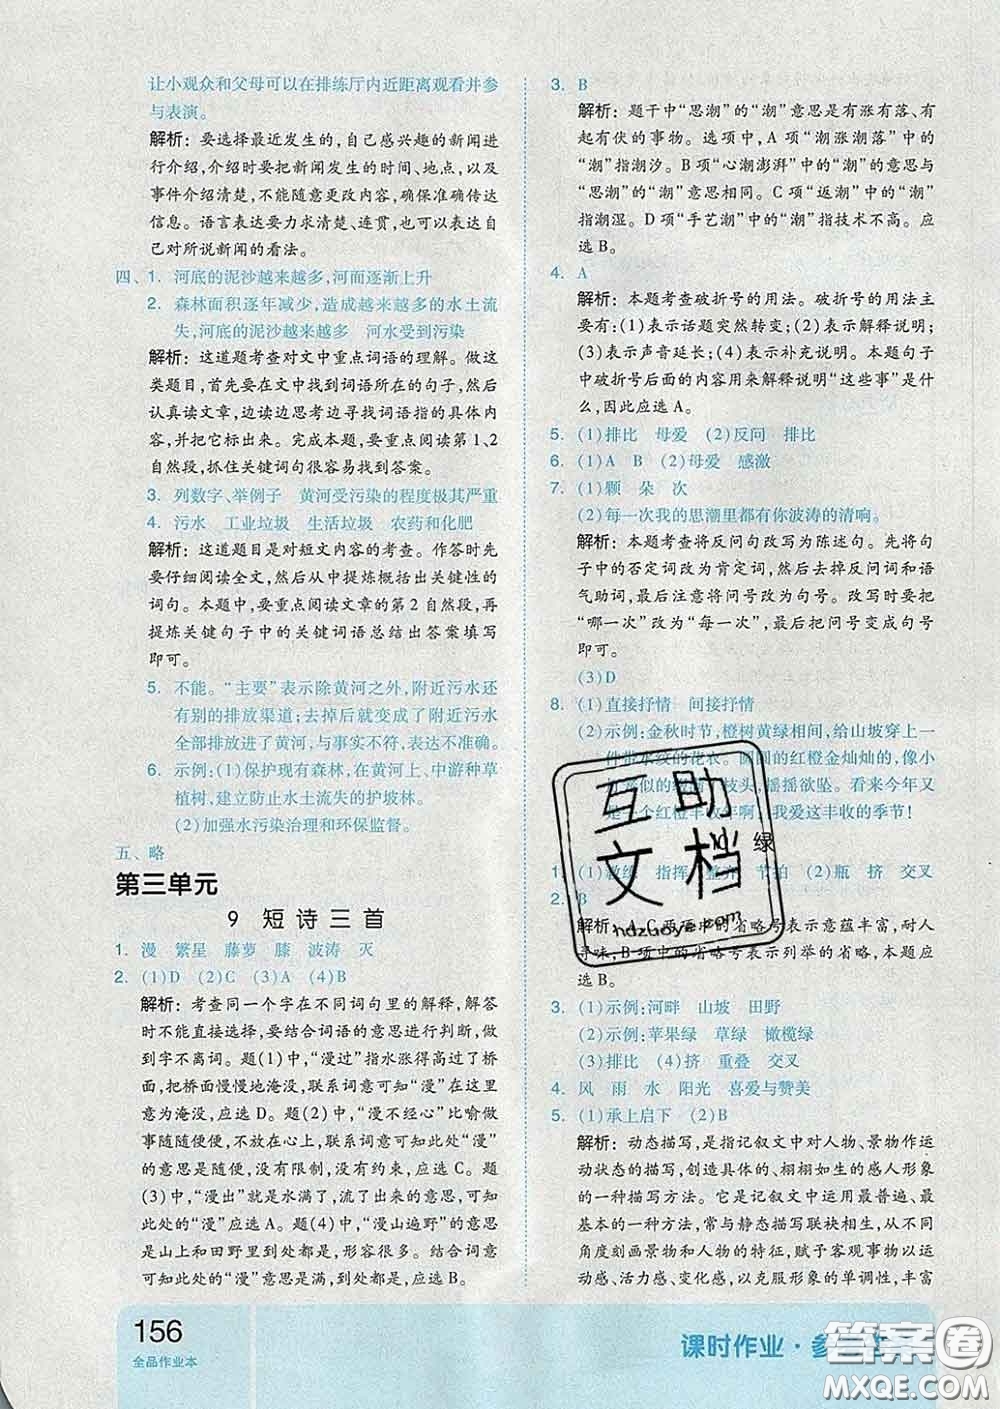 让小观众和父母可以在排练厅内近距离观看并参
与表演。
解析：要选择最近发生的，自己感兴趣的新闻进
行介绍，介绍时要把新闻发生的时间、地点，以及
事件介绍清楚，不能随意更改内容，确保准确传达
信息。语言表达要力求清楚、连贯，也可以表达自
己对所说新闻的看法。
四、1. 河底的泥沙越来越多，河面逐渐上升
2. 森林面积逐年减少，造成越来越多的水土流
失，河底的泥沙越来越多　河水受到污染
解析：这道题考查对文中重点词语的理解。做这
类题目，首先要在文中找到词语所在的句子，然后
认真读文章，边读边思考边寻找词语指的具体内
容，并把它标出来。完成本题，要重点阅读第1、2
自然段，抓住关键词句很容易找到答案。
3. 列数字、举例子　黄河受污染的程度极其严重
4. 污水　工业垃圾　生活垃圾　农药和化肥
解析：这道题目是对短文内容的考查。作答时先
要仔细阅读全文，然后从中提炼概括出关键性的
词句。本题中，要重点阅读文章的第2自然段，再
提炼关键句子中的关键词语总结出答案填写
即可。
5. 不能。“主要”表示除黄河之外，附近污水还
有别的排放渠道；去掉后就变成了附近的污水
全部排放进了黄河，与事实不符，表达不准确。
6. 示例：(1)保护现有森林，在黄河上、中游种草
植树，建立防止水土流失的护坡林。
(2)加强水污染治理和环保监督。
五、略
第三单元
9 短诗三首
1. 漫　繁星　藤萝　膝　波涛　灭
2. (1)D　(2)C　(3)A　(4)B
解析：考查同一个字在不同词句里的解释，解答
时不能直接选择，要结合词语的意思进行判断，做
到字不离词。题(1)中，“漫过”指水涨得高过了桥
面，把桥面慢慢地淹没，联系词意可知“漫”在这里
意为淹没，应选D。题(2)中，“漫不经心”比喻做
事随随便便，不放在心上，联系词意可知此处“漫”
的意思是随便，没有限制，没有拘束，应选C。题
(3)中，“漫出”就是水满了，流了出来的意思，可知
此处的“漫”应选A。题(4)中，“漫山遍野”的意思
是山上和田野里到处都是，形容很多。结合词意
可知此处的“漫”意思是满，到处都是，应选B。
3. B
解析：题干中“思潮”的“潮”意思是有涨有落、有
起有伏的事物。选项中，A项“潮涨潮落”中的
“潮”指潮汐。B项“心潮澎湃”中的“潮”的意思与
“思潮”的“潮”意思相同。C项“返潮”中的“潮”
指潮湿。D项“手艺潮”中的“潮”指技术不高。应
选B。
4. A
解析：本题考查破折号的用法。破折号的用法主
要有：(1)表示话题突然转变；(2)表示解释说明；
(3)表示声音延长；(4)表示补充说明。本题句子
中破折号后面的内容用来解释说明“这些事”是什
么，因此应选A。
5. (1)排比　母爱　(2)反问　排比
6. (1)A　B　(2)母爱　感激
7. (1)颗　朵　次
(2)每一次我的思潮里都有你波涛的清响。
解析：本题考查将反问句改写为陈述句。先将句
子中的否定词改为肯定词，然后去掉反问词和语
气助词，最后注意将问号改为句号。改写时要把
“哪一次”改为“每一次”，最后把问号变成句号
即可。
(3)D
8. (1)直接抒情　间接抒情
(2)示例：金秋时节，橙树黄绿相间，给山坡穿上
一件带水纹的花衣。圆圆的红橙金灿灿的，像小
似的缀满枝头，摇摇欲坠。看来今年又
是一个红橙丰收年啊！我爱这丰收的季节！
绿
1. (1)教练　指挥　整齐　节拍　(2)瓶　挤　交叉
2. B
解析：A、C两项中的省略号表示意蕴丰富，耐人
寻味，B项中的省略号表示列举的省略。本题应
选B。
3. (1)示例：河畔　山坡　田野
(2)示例：苹果绿　草绿　橄榄绿
(3)排比　(4)挤　重叠　交叉
4. 风　雨　水　阳光　喜爱与赞美
5. (1)承上启下　(2)B
解析：动态描写，是指记叙文中对人物、景物作运
动状态的描写，创造具体的、栩栩如生的感人形象
的一种描写方法。它是记叙文中运用最普遍、最
基本的一种方法，常与静态描写联袂相生，从不同
角度刻画景物和人物的特征，赋予客观事物以运
动感、活力感、变化感，以克服形象的单调性，丰富
互助
文档
hdzuoye.com
156
全品作业本
课时作业·参
答案圈
MXQE.COM